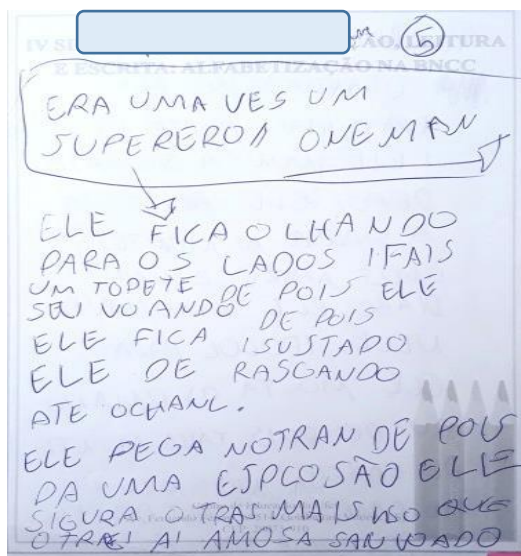 5
IV S ÇÃO, LEITURA
E ESCRITA: ALFABETIZAÇÃO NA BNCC
ERA UMA VES UM
SUPEREROI ONEMAN
ELE FICA OLHANDO
PARA OS LADOS IFAIS
UM TOPETE DE POIS ELE
SEU VOANDO DE POIS
ELE FICA ISUSTADO
ELE DE RASGANDO
ATE OCHANL.
ELE PEGA NOTRAN DE POIS
DA UMA EJPLOSÃO ELE
SIGURA OTRAS MAIS NO QUE
OTRAS AI AMOSA SAN VOADO